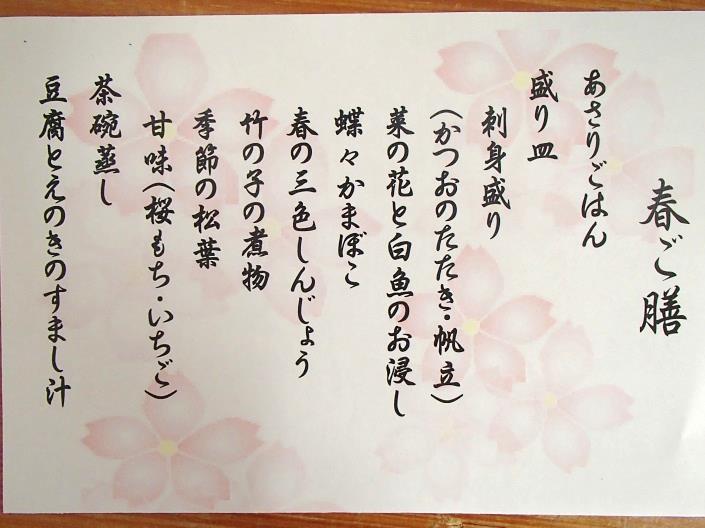 春ご膳
あさりごはん
盛り皿
刺身盛り
（かつおのたたき・帆立）
菜の花と白魚のお浸し
蝶々かまぼこ
春の三色しんじょう
竹の子の煮物
季節の松葉
甘味（桜もち・いちご）
茶碗蒸し
豆腐とえのきのすまし汁